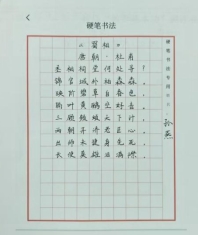 硬笔书法
《蜀相》
唐·杜甫
丞相祠堂何处寻？
锦官城外柏森森。
映阶碧草自春色，
隔叶黄鹂空好音。
三顾频烦天下计，
两朝开济老臣心。
出师未捷身先死，
长使英雄泪满襟。
硬笔书法专用
孙燕